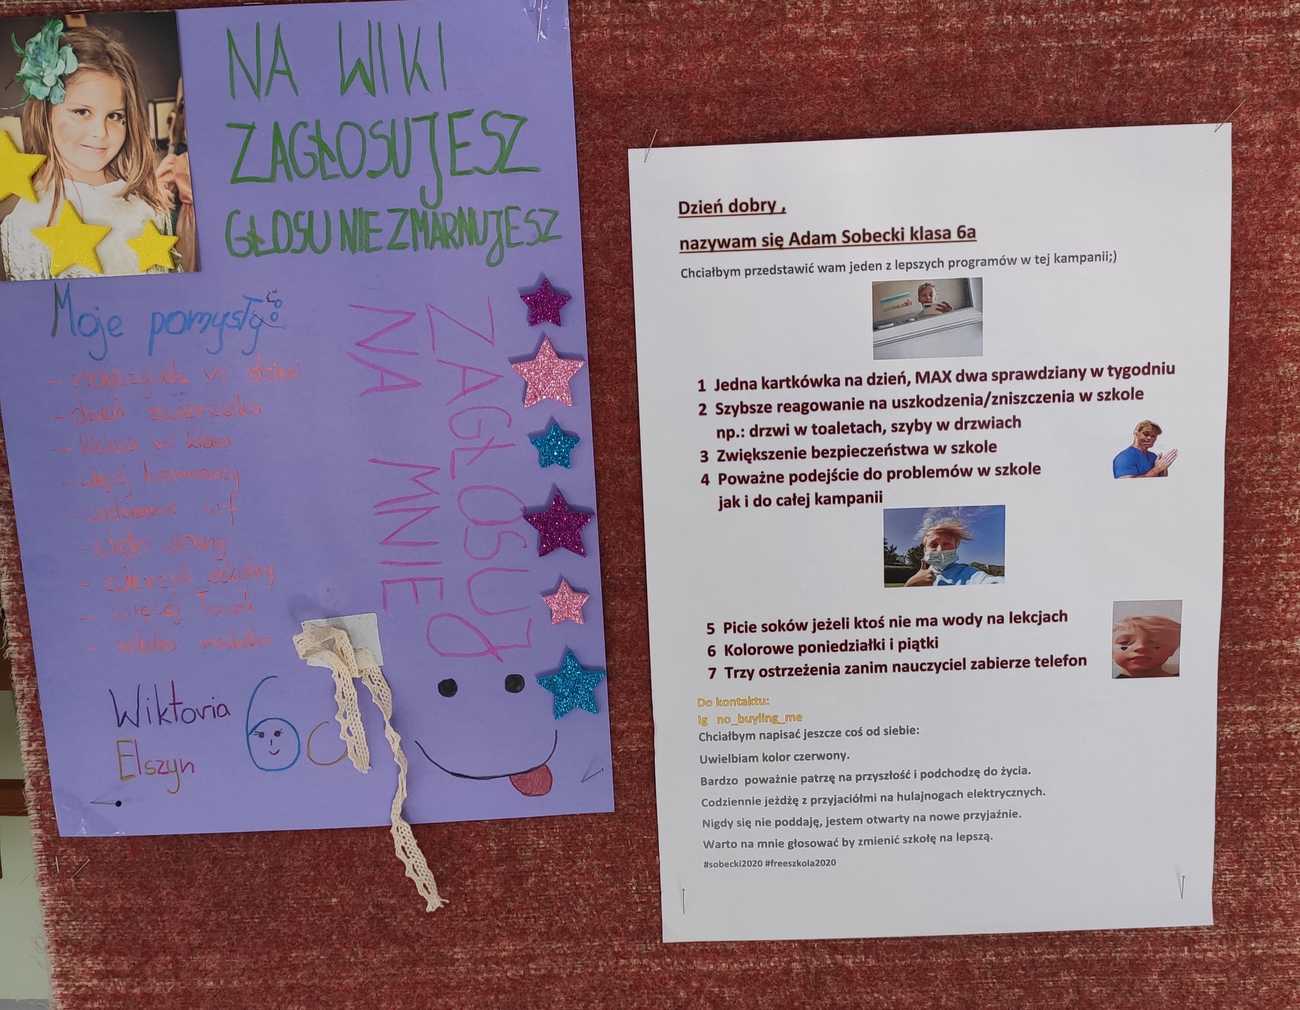 NA WIKI
ZAGŁOSUJESZ
GŁOSU NIE ZMARNUJESZ
Moje pomysły:
- dzień zwierzaka
- więcej
- wf
- więcej
ZAGŁOSUJ
NA MNIE
Wiktoria
Elszyn
6c
Dzień dobry ,
nazywam się Adam Sobecki klasa 6a
Chciałbym przedstawić wam jeden z lepszych programów w tej kampanii;)
1 Jedna kartkówka na dzień, MAX dwa sprawdziany w tygodniu
2 Szybsze reagowanie na uszkodzenia/zniszczenia w szkole
np.: drzwi w toaletach, szyby w drzwiach
3 Zwiększenie bezpieczeństwa w szkole
4 Poważne podejście do problemów w szkole
jak i do całej kampanii
5 Picie soków jeżeli ktoś nie ma wody na lekcjach
6 Kolorowe poniedziałki i piątki
7 Trzy ostrzeżenia zanim nauczyciel zabierze telefon
Do kontaktu:
Ig no_buyling_me
Chciałbym napisać jeszcze coś od siebie:
Uwielbiam kolor czerwony.
Bardzo poważnie patrzę na przyszłość i podchodzę do życia.
Codziennie jeżdżę z przyjaciółmi na hulajnogach elektrycznych.
Nigdy się nie poddaję, jestem otwarty na nowe przyjaźnie.
Warto na mnie głosować by zmienić szkołę na lepszą.
#sobecki2020 #freeszkola2020